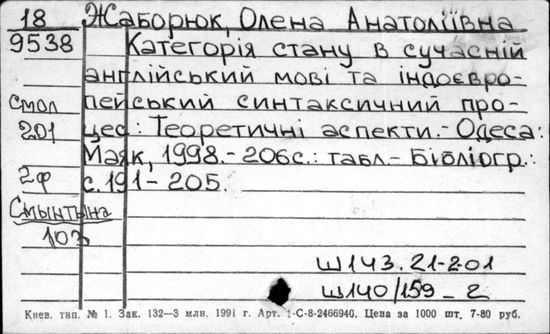 18 Жаборюк, Олена Анатоліївна
9538 Категорія стану в сучасній
англійський мові та індоєвро-
Смол пейський синтаксичний про-
201 цес.: Теоретичні аспекти.- Одеса:
Маяк, 1998.- 206с.: табл.- Бібліогр.:
2ф с. 191-205.
Смынтына
103
Ш143.21-2.01
Ш140/159_2
Киев. тип. № 1. Зак. 132—3 млн. 1991 г. Арт. 1-С-8-2466940. Цена за 1000 шт. 7-80 руб.